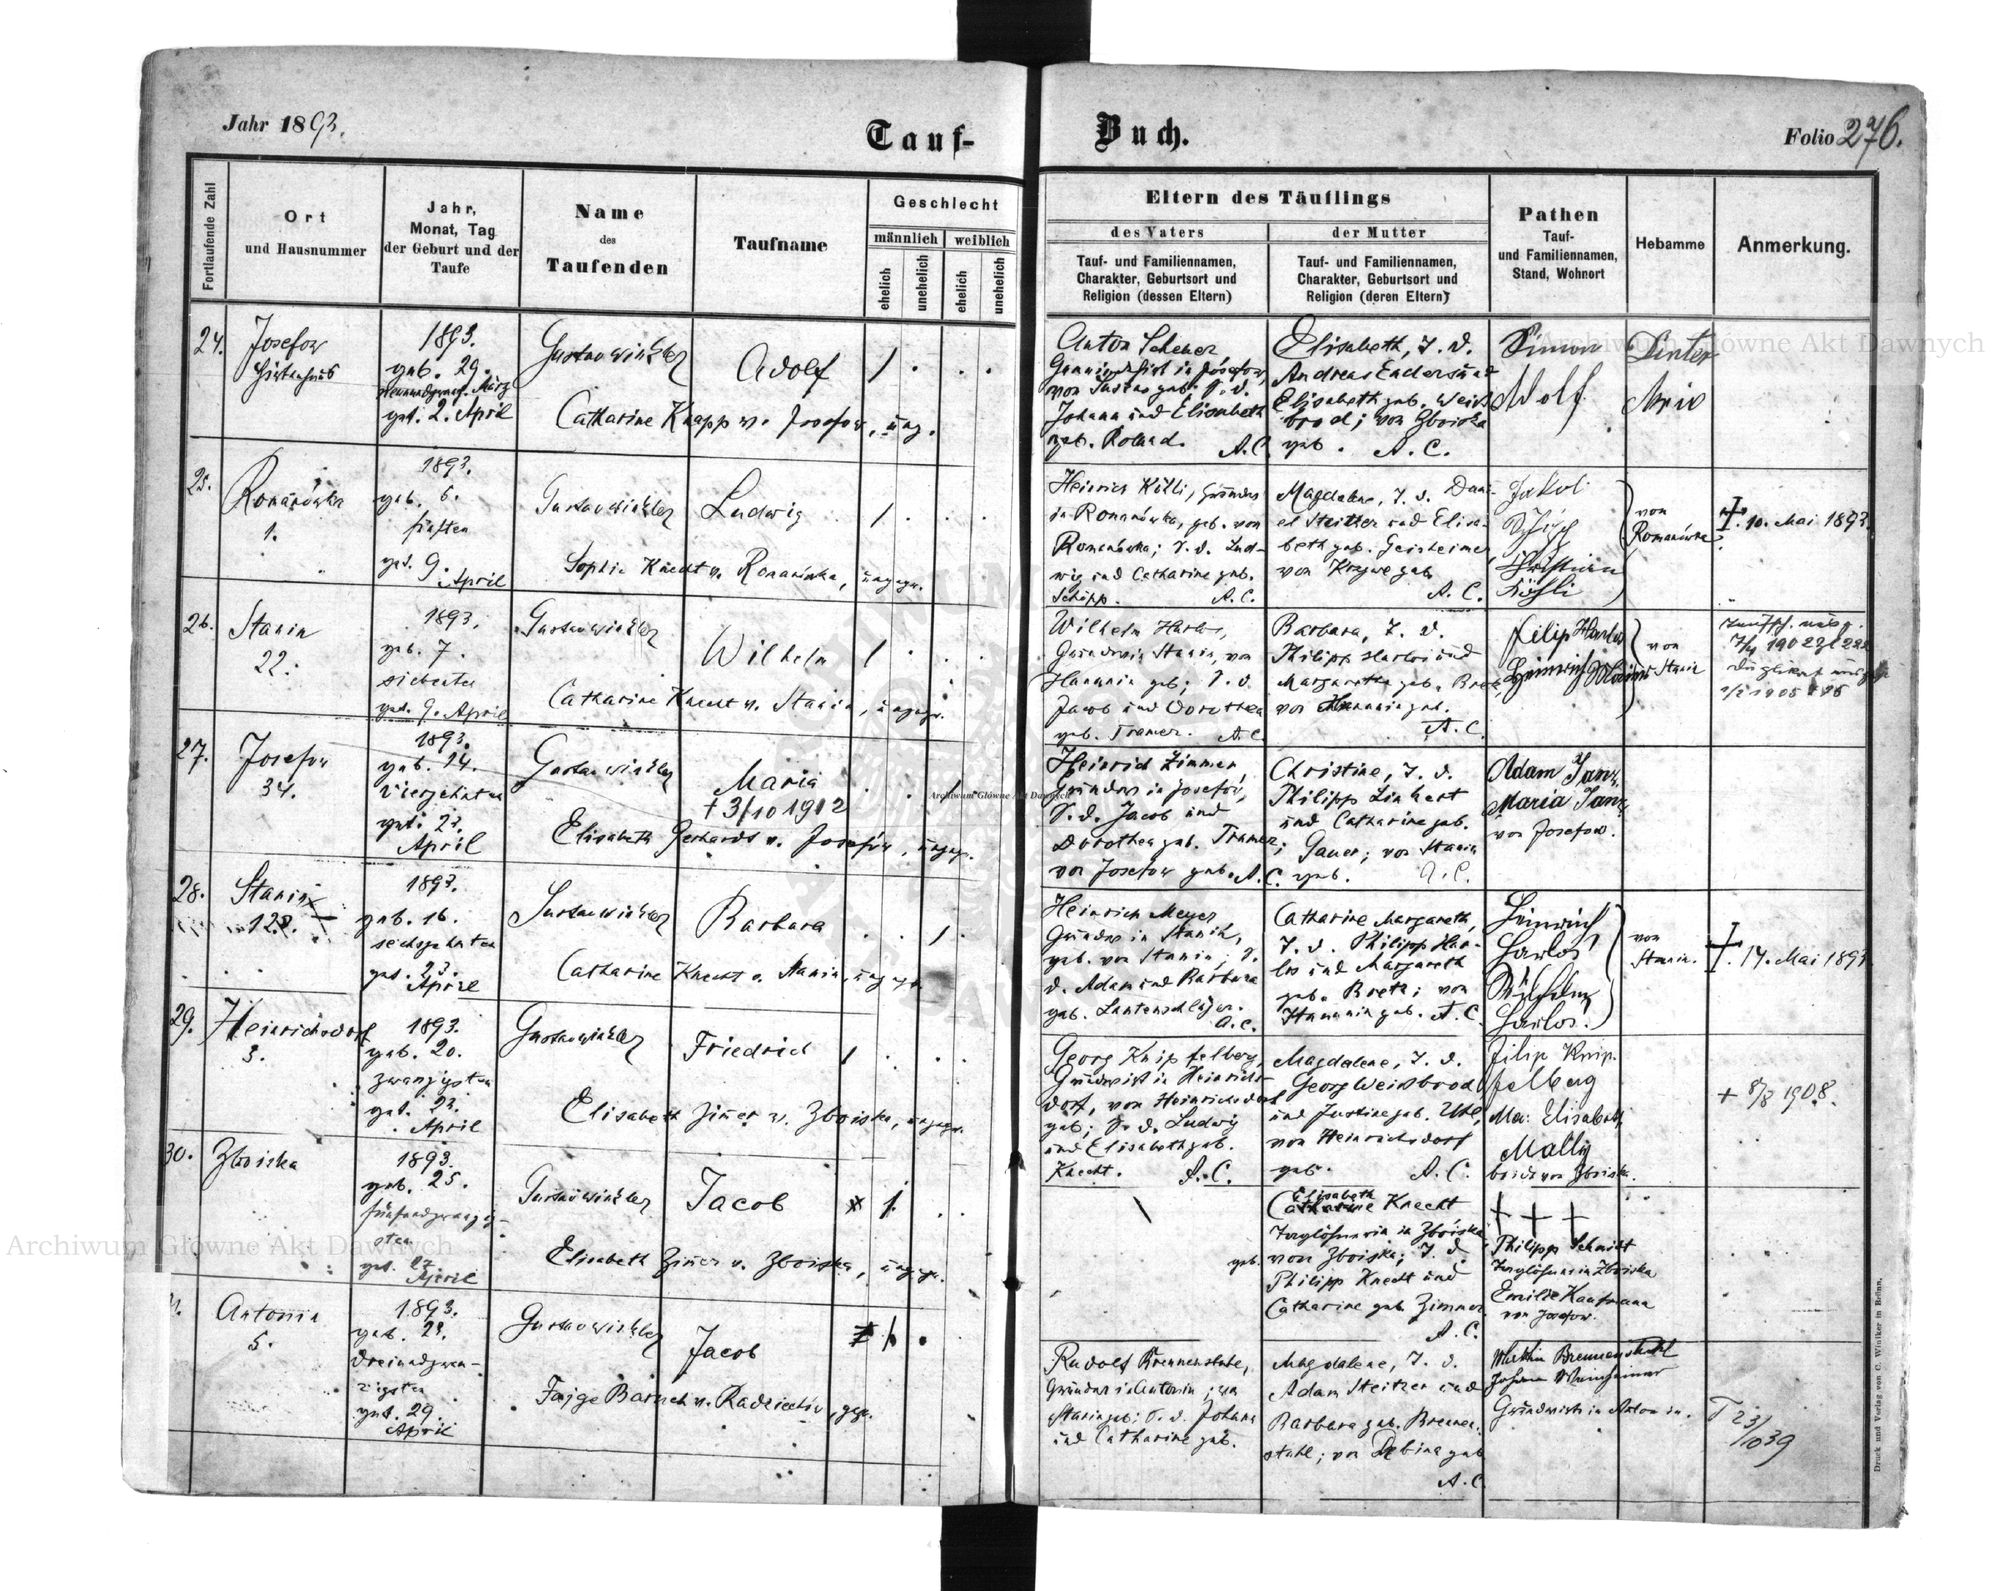 Jahr 1893.
Tauf-
Buch.
Folio 276.
Fortlaufende Zahl
Ort
und Hausnummer
Jahr,
Monat, Tag
der Geburt und der
Taufe
Name
des
Taufenden
Taufname
Geschlecht
männlich
weiblich
ehelich
unehelich
ehelich
unehelich
Eltern des Täuflings
des Vaters
Tauf- und Familiennamen,
Charakter, Geburtsort und
Religion (dessen Eltern)
der Mutter
Tauf- und Familiennamen,
Charakter, Geburtsort und
Religion (deren Eltern)
Pathen
Tauf-
und Familiennamen,
Stand, Wohnort
Hebamme
Anmerkung.
24.
Josefow
1893.
geb. 29.
März
get. 2. April
Gustav Winkler
Adolf
Catharine Knapp v. Josefow, ung.
Anton Scherer
in Josefow,
Johann und Elisabeth
geb. Roland. A.C.
Elisabeth, T. d.
Andreas Enders und
Elisabeth geb. Weiß
brod; von Zboiska
geb. A. C.
Simon
Adolf
25.
Romanówka
1.
1893.
geb. 6.
fünften
get. 9.
April
Gustav Winkler
Ludwig
Sophie Knecht v. Romanówka, ungepr.
Heinrich Köhli, Grundw
in Romanówka, geb. von
Romanówka; S. d. Lud-
wig und Catharine geb.
Schöpp. A.C.
Magdalene, T. d. Dani-
el Steitzer und Elisa-
beth geb. Geisheimer,
von Krzywe geb.
A. C.
Jakob
Schöpp
Christian
Köhli
von
Romanówka
† 10. Mai 1893.
26.
Stanin
22.
1893.
geb. 7.
siebenten
get. 9. April
Gustav Winkler
Wilhelm
Catharine Knecht v. Stanin, ungepr.
Wilhelm Harlos,
Grundw in Stanin, von
Hanunin geb; S. d.
Jacob und Dorothea
geb. Tramer. A.C.
Barbara, T. d.
Philipp Harlos und
Margaretha geb. Bretz,
von Hanunin geb.
A. C.
Filip Harlos
Heinrich
von
Stanin
27.
Josefow
34.
1893.
geb. 14.
vierzehnten
get. 23.
April
Gustav Winkler
Maria
† 3/10 1912
Elisabeth Gerhards v. Josefów, ungepr.
Heinrich Zimmer,
Grundw in Josefow,
S. d. Jacob und
Dorothea geb. Tramer;
von Josefow geb. A.C.
Christine, T. d.
Philipp Linhart
und Catharine geb.
Gauer; von Stanin
geb. A. C.
Adam Janz,
Maria Janz
von Josefow.
28.
Stanin
1893.
geb. 16.
sechszehnten
get. 23.
April
Gustav Winkler
Barbara
Catharine Knecht v. Stanin, ungepr.
Heinrich Meyer,
Grundw in Stanin,
geb. von Stanin; S.
d. Adam und Barbara
geb. Lautenschläger.
A.C.
Catharine Margareth,
T. d. Philipp Har-
los und Margareth
geb. Bretz; von
Hanunin geb. A. C.
Heinrich
Harlos
Wilhelm
Harlos.
von
Stanin.
† 14. Mai 1893.
29.
Heinrichsdorf
3.
1893.
geb. 20.
zwanzigsten
get. 23.
April
Gustav Winkler
Friedrich
Elisabeth Zimer v. Zboiska, ungepr.
Georg Knipfelberg,
Grundwirth in Heinrichs-
dorf, von Heinrichsdorf
geb; S. d. Ludwig
und Elisabeth geb.
Knecht. A. C.
Magdalene, T. d.
Georg Weissbrod
und Justine geb. Uhl,
von Heinrichsdorf
geb. A. C.
Filip Knip-
felberg
Ma: Elisabeth
Mally
beide von Zboiska.
+ 8/8 1908.
30.
Zboiska
1893.
geb. 25.
fünfundzwanzig-
sten
get. 27.
April
Gustav Winkler
Jacob
Elisabeth Zimer v. Zboiska, ungepr.
Elisabeth
Catharine Knecht
Taglöhnerin in Zboiska
geb. von Zboiska; T. d.
Philipp Knecht und
Catharine geb. Zimmer
A. C.
+ + +
Philipp Schmidt
Taglöhner in Zboiska
Emilie Kaufmann
von Josefow.
Antonin
5.
1893.
geb. 23.
dreiundzwan-
zigsten
get. 29.
April
Gustav Winkler
Jacob
Fajge Baruch v. Radziechów, gepr.
Rudolf Brennenstuhl,
Grundw in Antonin; von
Stanin geb; S. d. Johann
und Catharine geb.
Magdalene, T. d.
Adam Steitzer und
Barbara geb. Brennen-
stuhl; von Debina geb
A. C.
Martin Brennenstuhl
Johann
Grundwirth in Antonin.
† 23/
1039
Druck und Verlag von C. Winiker in Brünn.
Archiwum Główne Akt Dawnych
Archiwum Główne Akt Dawnych
Archiwum Główne Akt Dawnych